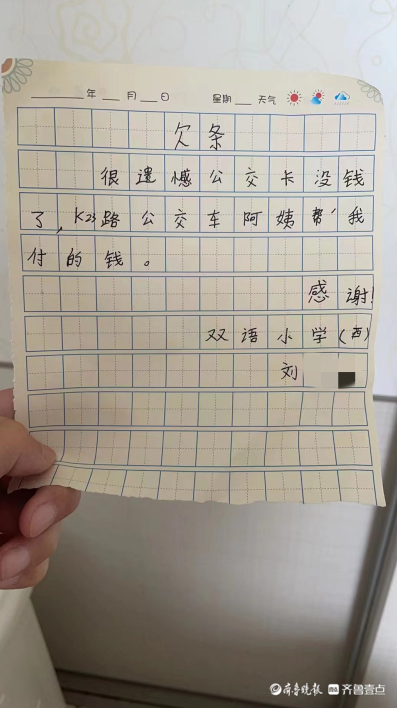 年 月 日 星期 天气
欠条
很遗憾公交卡没钱
了,K23路公交车阿姨帮我
付的钱。
感谢!
双语小学(西)
刘
齐鲁晚报 齐鲁壹点